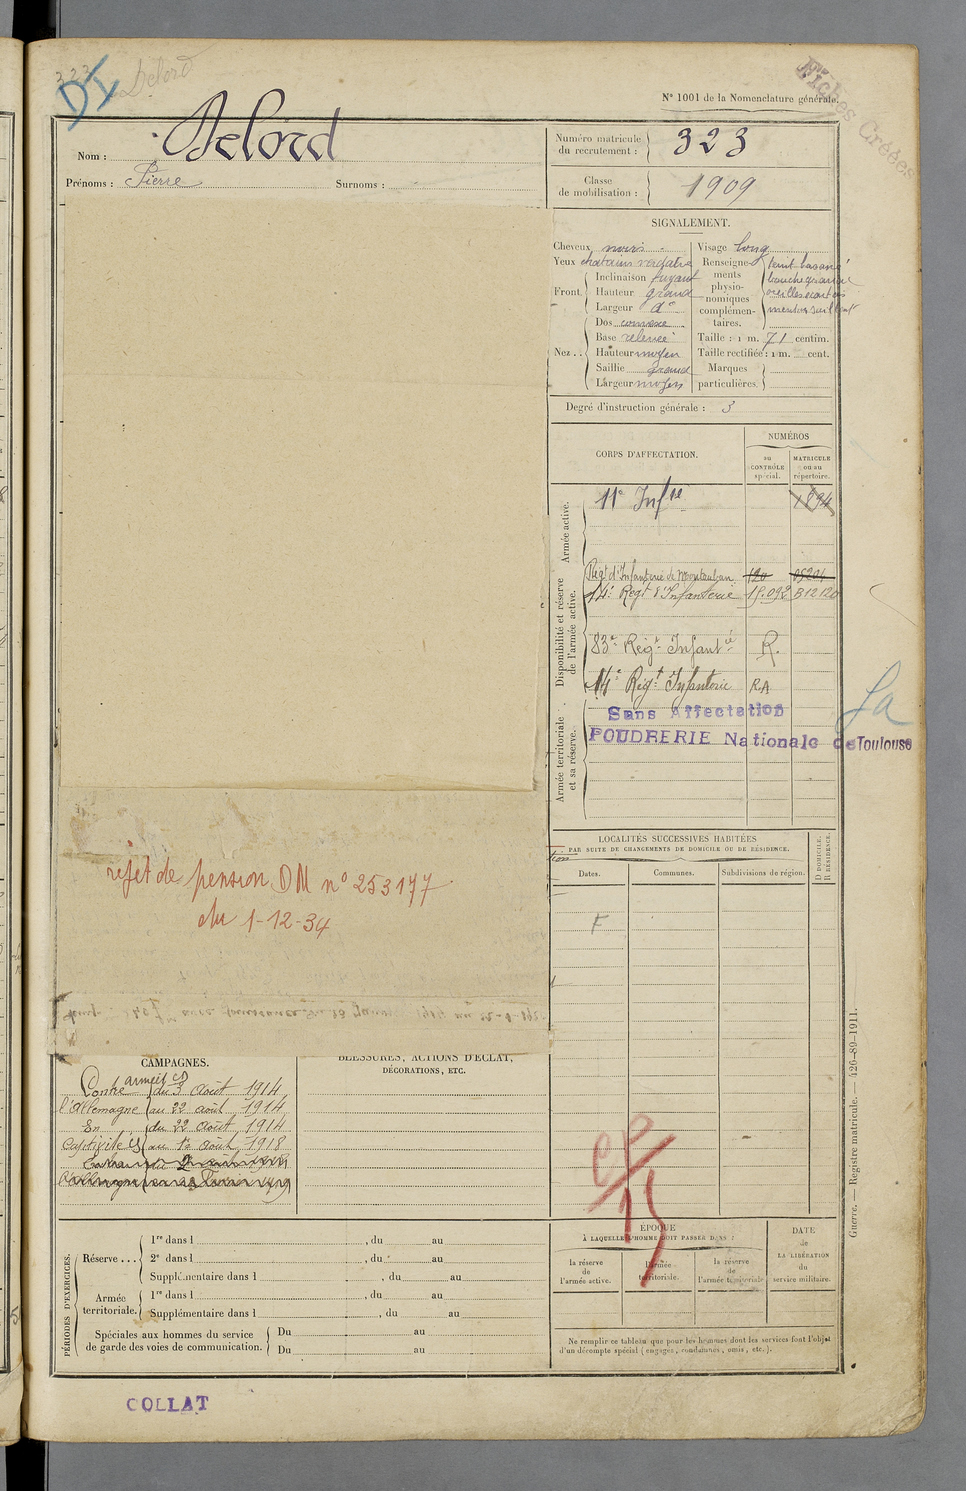 323
DI
Delord
Fiches Créées
N° 1001 de la Nomenclature générale.
Nom : Delord
Prénoms : Pierre Surnoms :
Numéro matricule du recrutement : 323
Classe de mobilisation : 1909
SIGNALEMENT.
Cheveux noirs
Yeux chatains verdatre
Front. Inclinaison fuyant
Hauteur grand
Largeur do
Nez .. Dos convexe
Base relevée
Hauteur moyen
Saillie grand
Largeur moyen
Visage long
Renseignements physionomiques complémentaires. teint basané
bouche grande
oreilles écartées
menton saillant
Taille : 1 m. 71 centim.
Taille rectifiée : 1 m. cent.
Marques particulières.
Degré d'instruction générale : 3
CORPS D'AFFECTATION.
NUMÉROS
au CONTRÔLE spécial.
MATRICULE ou au répertoire.
Armée active.
11e Infie 1894
Disponibilité et réserve de l'armée active.
Régt d'Infanterie de Montauban 120 05204
14e Regt d'Infanterie 15.092 B12120
83e Régt Infantie R.
14e Régt Infanterie R.A
Armée territoriale et sa réserve.
Sans Affectation
POUDRERIE Nationale de Toulouse
Sa
LOCALITÉS SUCCESSIVES HABITÉES
PAR SUITE DE CHANGEMENTS DE DOMICILE OU DE RÉSIDENCE.
Dates. Communes. Subdivisions de région.
D DOMICILE.
R RÉSIDENCE.
F
rejet de pension DM n° 253177
du 1-12-34
CAMPAGNES.
Contre armée CD du 3 Août 1914
l'Allemagne au 22 août 1914
En du 22 Août 1914
Captivité au 12 Août 1918
BLESSURES, ACTIONS D'ÉCLAT,
DÉCORATIONS, ETC.
CP
15
ÉPOQUE
À LAQUELLE L'HOMME DOIT PASSER DANS :
la réserve de l'armée active.
l'armée territoriale.
la réserve de l'armée territoriale
DATE de LA LIBÉRATION du service militaire.
Ne remplir ce tableau que pour les hommes dont les services font l'objet
d'un décompte spécial (engagés, condamnés, omis, etc.).
PÉRIODES D'EXERCICES.
Réserve ... 1re dans l , du au
2e dans l , du au
Supplémentaire dans l , du au
Armée territoriale. 1re dans l , du au
Supplémentaire dans l , du au
Spéciales aux hommes du service
de garde des voies de communication. Du au
Du au
Guerre. — Registre matricule. — 426-89-1911.
COLLAT